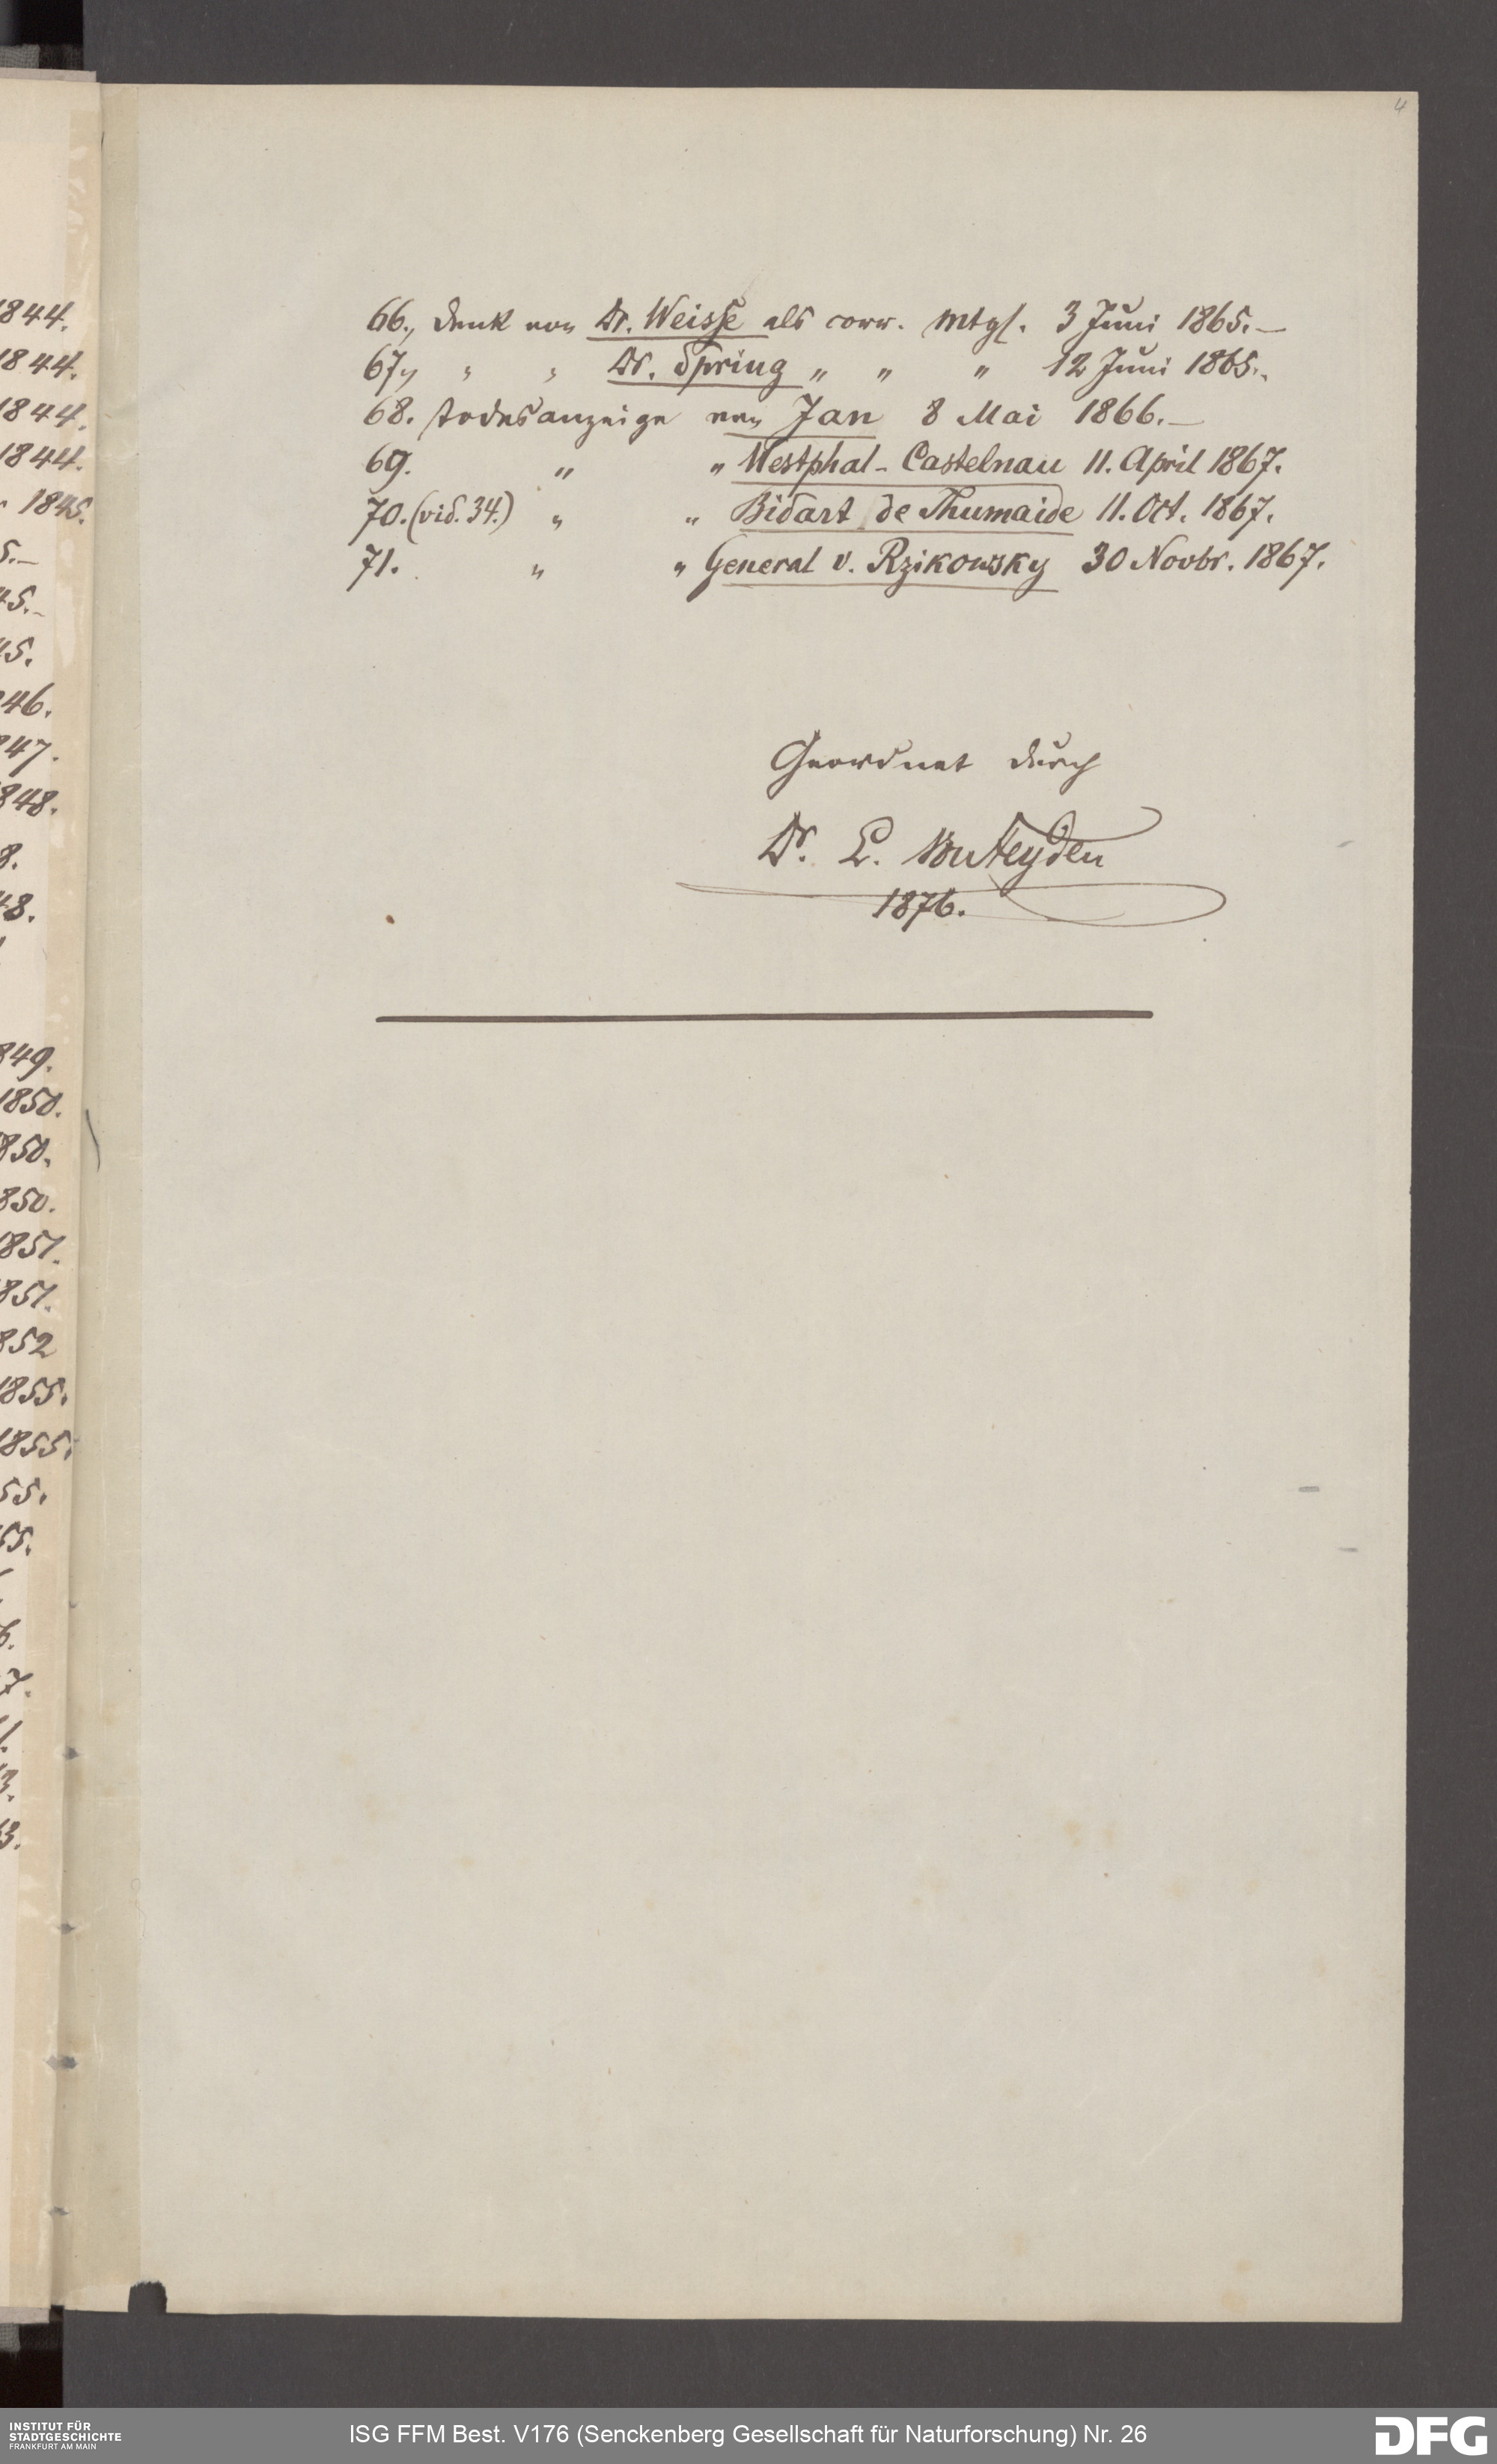 4
1844.
1844.
1844.
1844.
1845.
5.–
45.–
45.
846.
847.
848.
8.
48.
849.
1850.
850.
850.
1851.
851.
852
1855.
1855.
55.
55.
6.
7.
1.
3.
63.
66., Dank von Dr. Weisse als corr. Mtgl. 3 Juni 1865.–
67., " " Dr. Spring " " " 12 Juni 1865.
68. Todesanzeige von Jan 8 Mai 1866.–
69. " " Westphal-Castelnau 11. April 1867.
70. (vid. 34.) " " Bidart de Thumaide 11. Oct. 1867.
71. " " General v. Rzikowsky 30 Novbr. 1867.
Geordnet durch
Dr. L. von Heyden
1876.
INSTITUT FÜR
STADTGESCHICHTE
FRANKFURT AM MAIN
ISG FFM Best. V176 (Senckenberg Gesellschaft für Naturforschung) Nr. 26
DFG